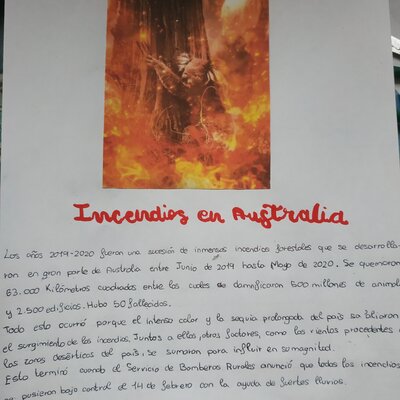 Incendios en Australia
Los años 2019-2020 fueron una sucesión de inmensos incendios forestales que se desarrolla-
ron en gran parte de Australia entre Junio de 2019 hasta Mayo de 2020. Se quemaron
63.000 Kilómetros cuadrados entre los cuales se damnificaron 500 millones de animal
y 2.500 edificios. Hubo 50 fallecidos.
Todo esto ocurrió porque el intenso calor y la sequía prolongada del país
el surgimiento de los incendios. Juntos a ellos, otros factores, como los vientos procedentes d
las zonas desérticas del país, se sumaron para influir en su magnitud.
Esto terminó cuando el Servicio de Bomberos Rurales anunció que todos los incendios
se pusieron bajo control el 14 de febrero con la ayuda de fuertes lluvias.